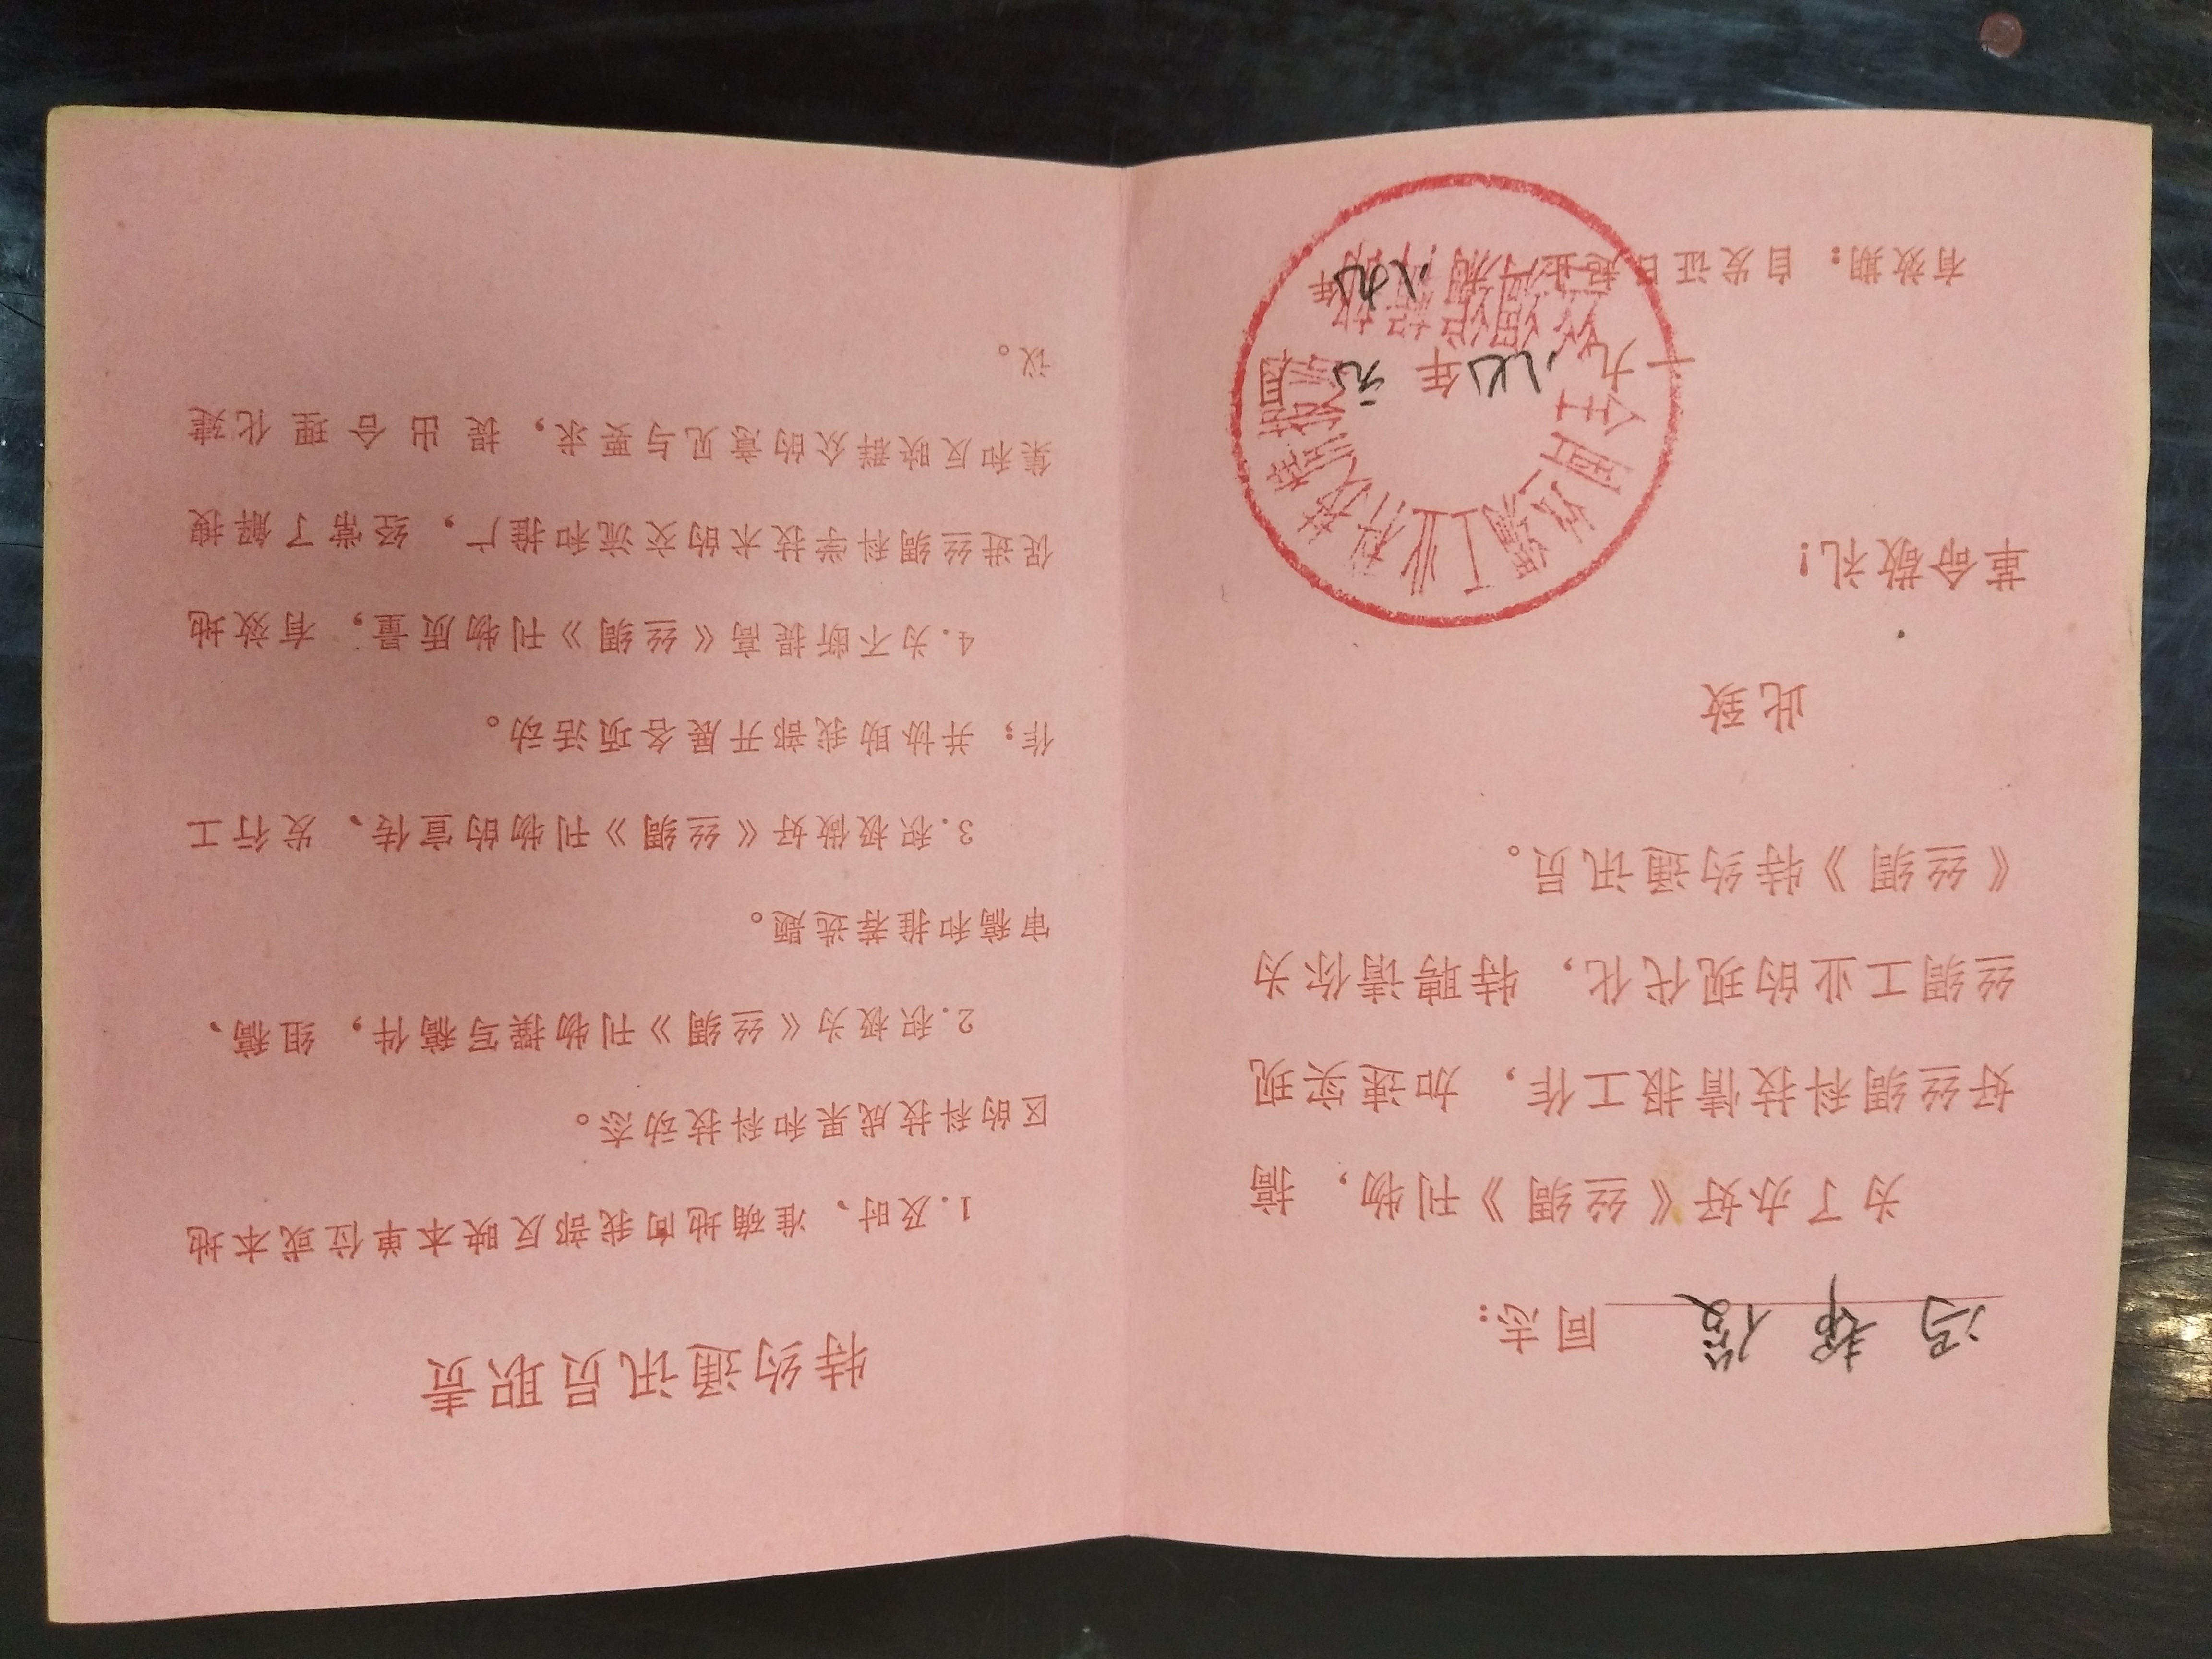 冯 同志:
为了办好《丝绸》刊物，搞
好丝绸科技情报工作，加速实现
丝绸工业的现代化，特聘请你为
《丝绸》特约通讯员。
此致
革命敬礼!
全国丝绸工业科技情报
丝绸编辑部
一九八七年元月
有效期：自发证日起止 八九年
特约通讯员职责
1.及时、准确地向我部反映本单位或本地
区的科技成果和科技动态。
2.积极为《丝绸》刊物撰写稿件，组稿、
审稿和推荐选题。
3.积极做好《丝绸》刊物的宣传、发行工
作；并协助我部开展各项活动。
4.为不断提高《丝绸》刊物质量，有效地
促进丝绸科学技术的交流和推广，经常了解搜
集和反映群众的意见与要求，提出合理化建
议。